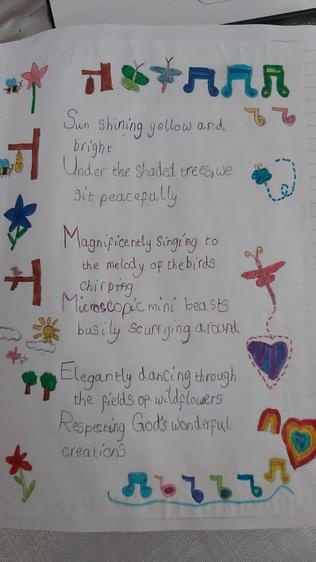 Sun shining yellow and
bright
Under the shaded trees, we
sit peacefully
Magnificently singing to
the melody of the birds
chirping
Microscopic mini beasts
busily scurrying around
Elegantly dancing through
the fields of wildflowers
Respecting God's wonderful
creations